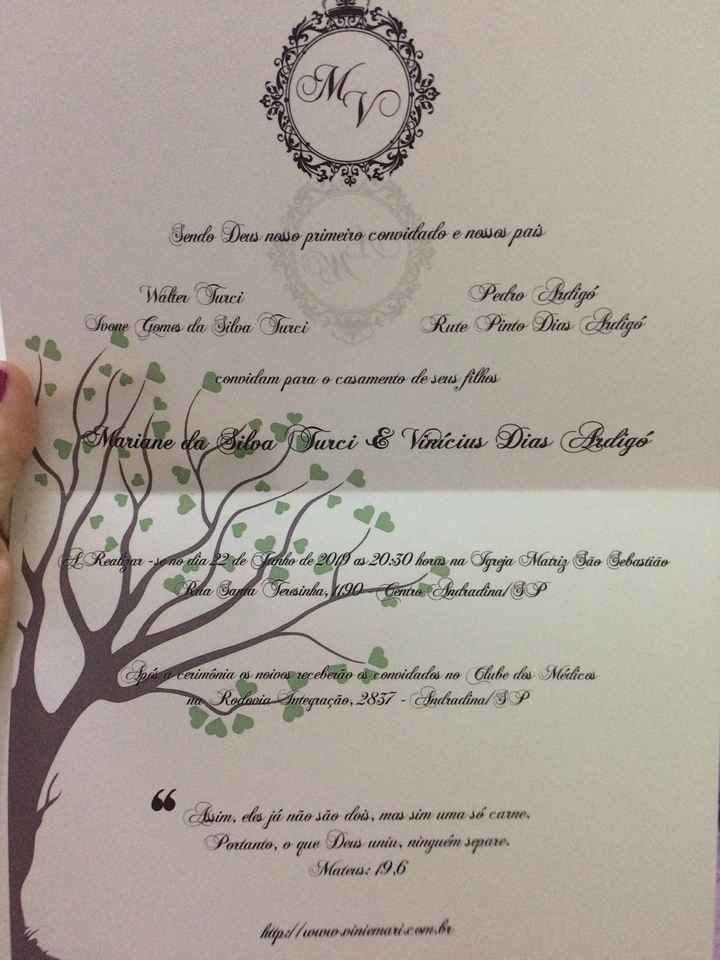 M
V
Sendo Deus nosso primeiro convidado e nossos pais
Walter Turci
Ivone Gomes da Silva Turci
Pedro Ardigó
Rute Pinto Dias Ardigó
convidam para o casamento de seus filhos
Mariane da Silva Turci & Vinícius Dias Ardigó
A Realizar-se no dia 22 de Junho de 2019 as 20:30 horas na Igreja Matriz São Sebastião
Rua Santa Teresinha, 1190 - Centro Andradina/SP
Após a cerimônia os noivos receberão os convidados no Clube dos Médicos
na Rodovia Integração, 2837 - Andradina/SP
“ Assim, eles já não são dois, mas sim uma só carne.
Portanto, o que Deus uniu, ninguém separe.
Mateus: 19,6
http://www.viniemari.com.br